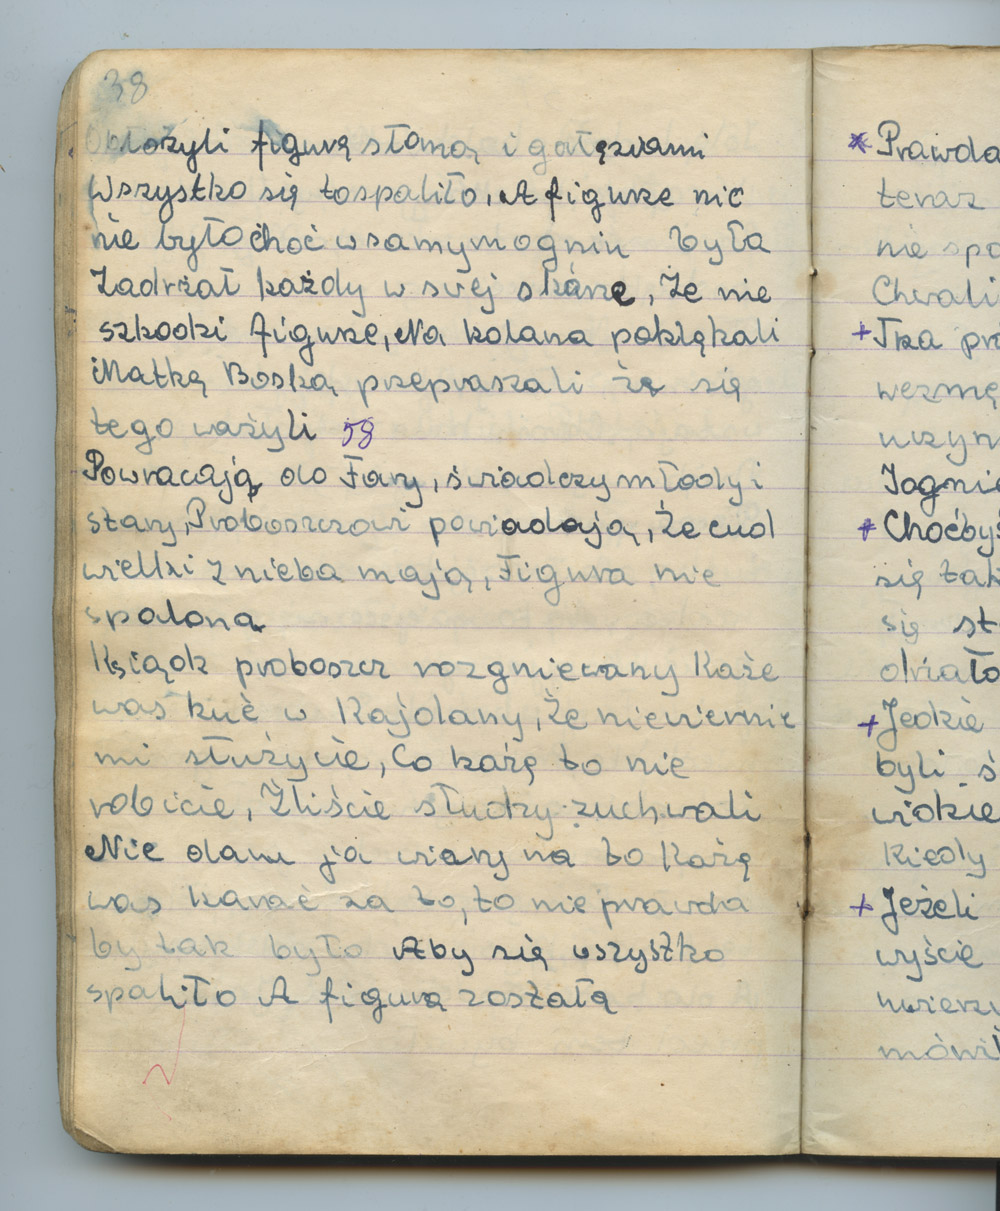 38
Obłożyli figurę słomą i gałęzriami
Wszystko się tospaliło, A figurze nic
nie było choć wsamymogniu była
Zadrżał każdy w swej skórze, Że nie
szkodzi figurze, Na kolana poklękali
Matkę Boską przepraszali żę się
tego ważyli 58
Powracają do Fary, świadczy młody i
stary, Proboszczowi powiadają, Że cud
wielki z nieba mają, Figura nie
spalona
Ksiądz proboszcz rozgniewany Każe
was kuć w Kajdany, Że niewiernie
mi służycie, Co każę to nie
robicie, Źliście słudzy zuchwali
Nie dam ja wiary na to Każę
was karać za to, to nie prawda
by tak było Aby się wszystko
spaliło A figurą zostałą
* Prawda
teraz
nie spa
Chwali
+ Trza prz
wezmę
uczyn
Iognie
+ Choćbyś
się tak
się sta
działo
+ Jedzie
byli ś
widzie
Kiedy
+ Jeżeli
wyście
uwierzy
mówił